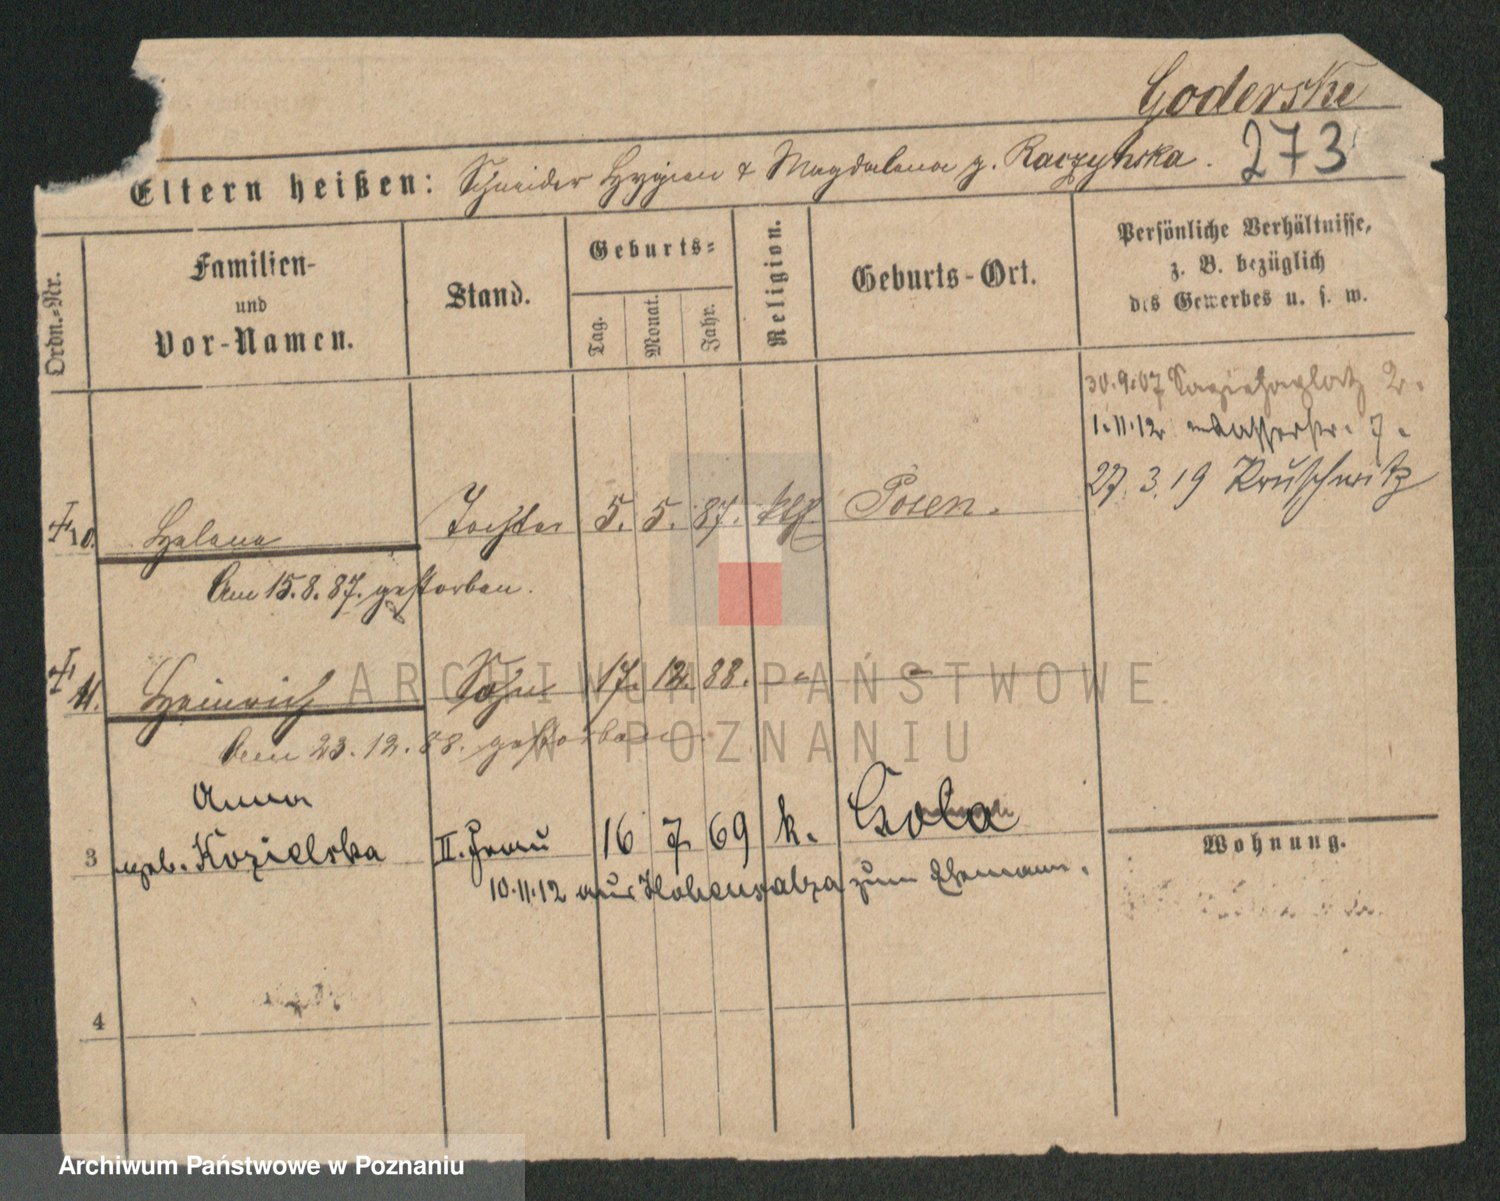 Goderske
273
Eltern heißen: Schneider Hygien & Magdalena g. Raczyńska.
Ordn.-Nr.
Familien-
und
Vor-Namen.
Stand.
Geburts-
Tag.
Monat.
Jahr.
Religion.
Geburts-Ort.
Persönliche Verhältnisse,
z. B. bezüglich
des Gewerbes u. s. w.
30.9.07 Sapiehaplatz 2.
1.11.12 Wasserstr. 7.
27.3.19 Kruschwitz
10. Helene Tochter 5. 5. 87. kth Posen.
Am 15.8.87. gestorben.
11. Heinrich Sohn 17. 12. 88. " "
Am 23.12.88. gestorben.
Anna
3 geb. Kozielska II. Frau 16 7 69 k. Gola
10.11.12 aus Hohensalza zum Ehemann.
Wohnung.
4
ARCHIWUM PAŃSTWOWE
W POZNANIU
Archiwum Państwowe w Poznaniu